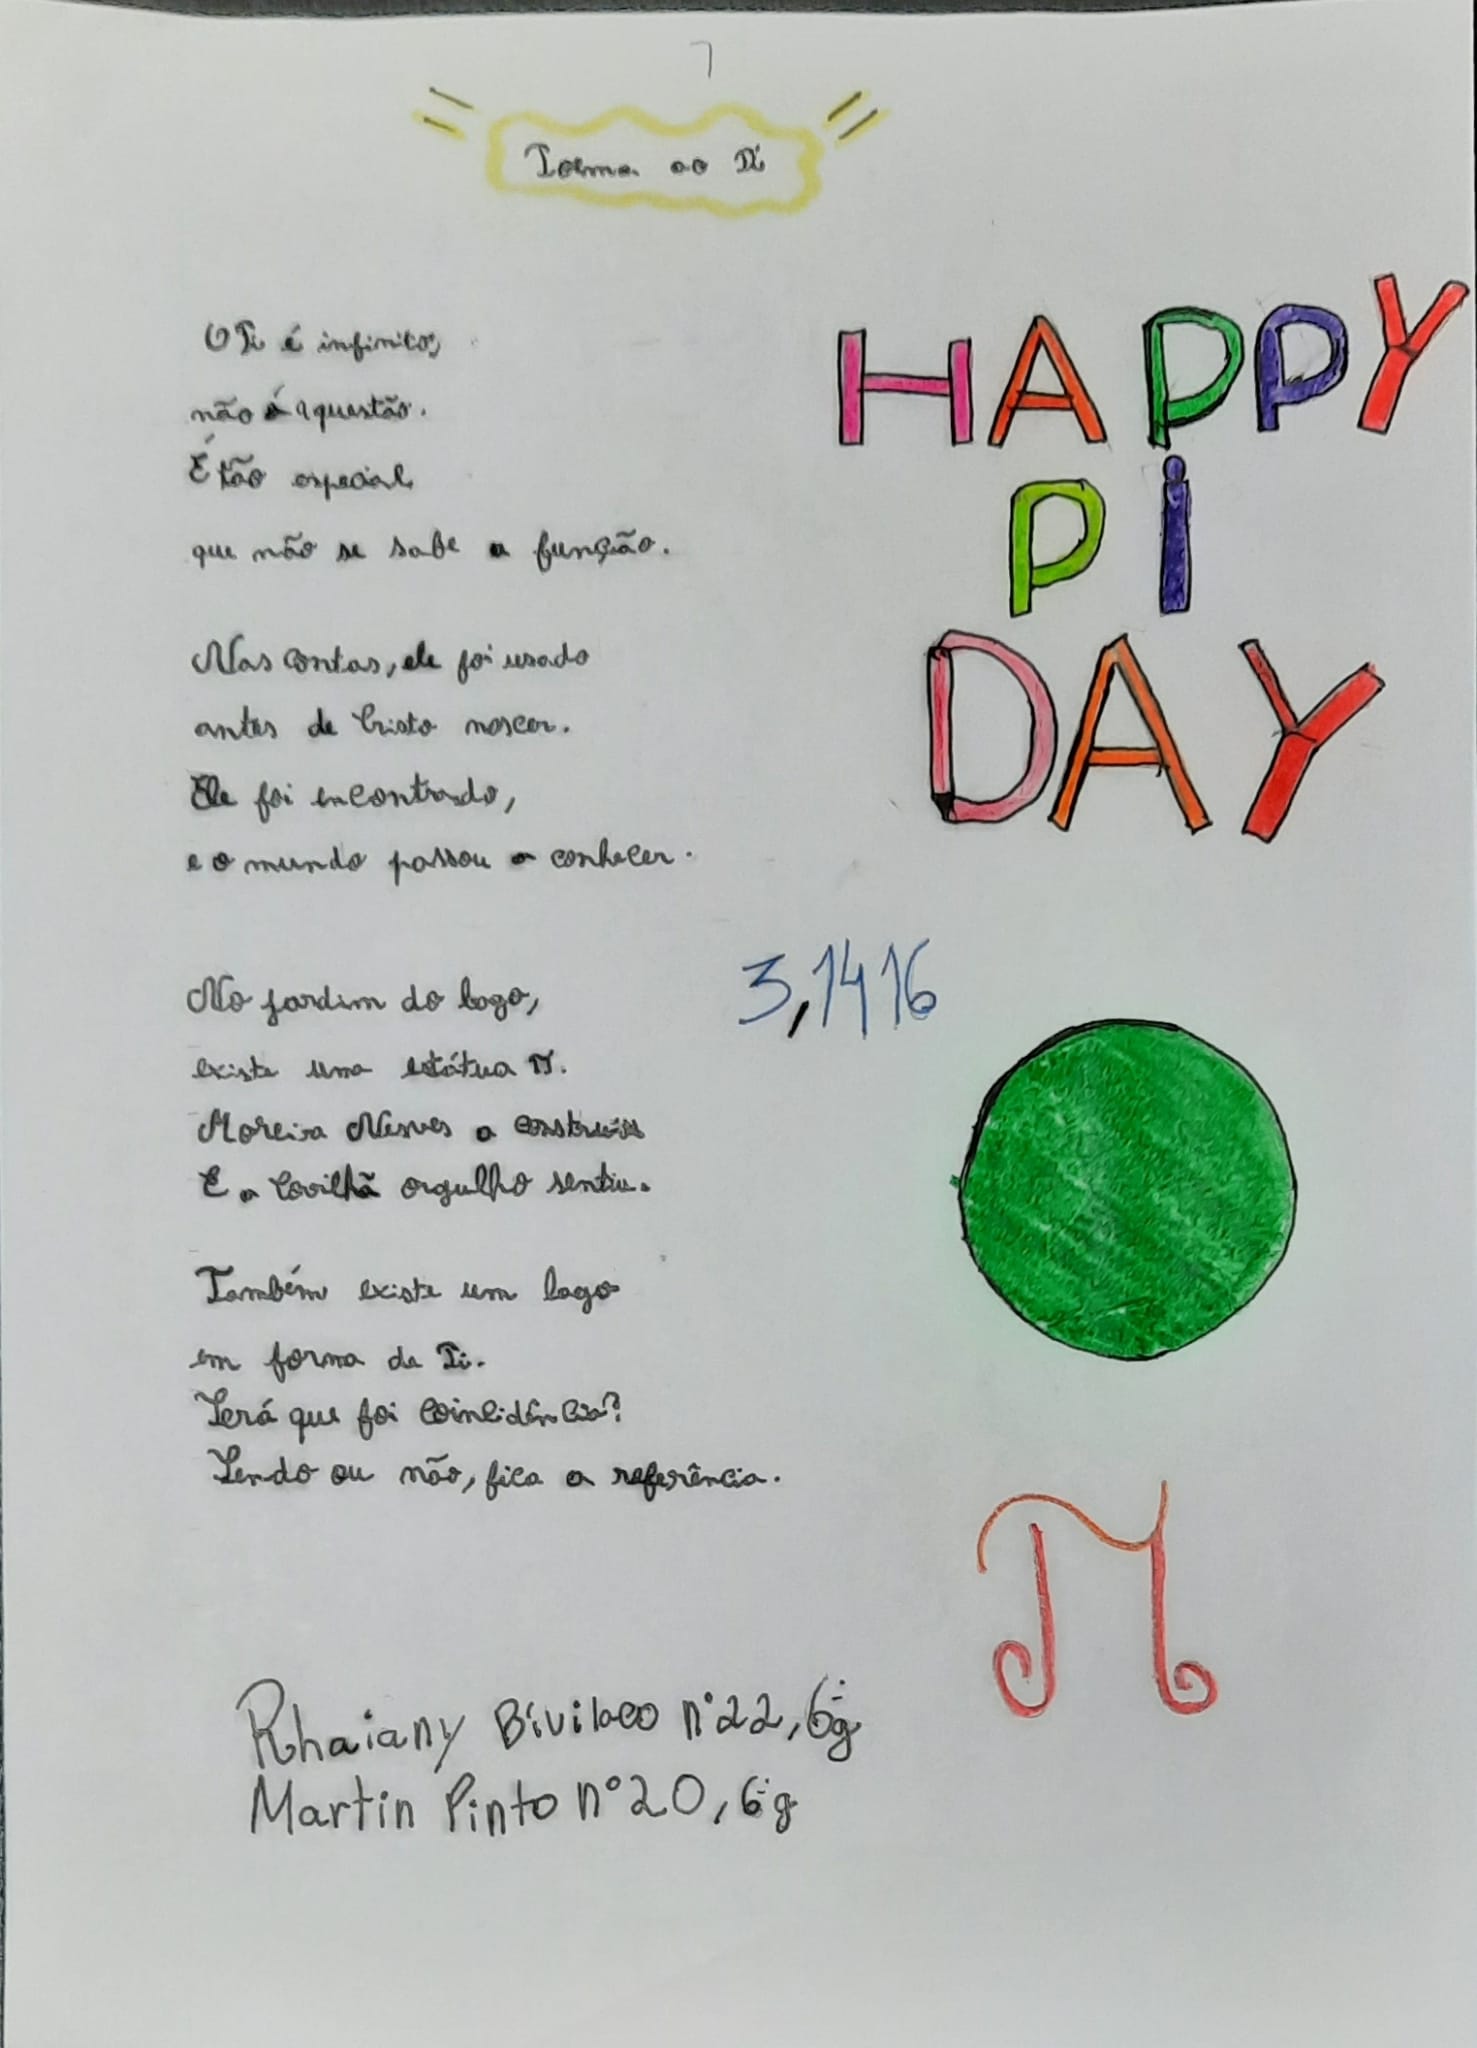 7
Poema ao Pi
O Pi é infinito,
não é questão.
É tão especial
que não se sabe a função.
Nas contas, ele foi usado
antes de Cristo nascer.
Ele foi encontrado,
e o mundo passou a conhecer.
No jardim do lago,
existe uma estátua π.
Moreira Neves a construiu
E a Covilhã orgulho sentiu.
Também existe um lago
em forma de Pi.
Será que foi coincidência?
Sendo ou não, fica a referência.
HAPPY
PI
DAY
3,1416
π
Rhaiany nº22, 6ºg
Martin Pinto nº20, 6ºg